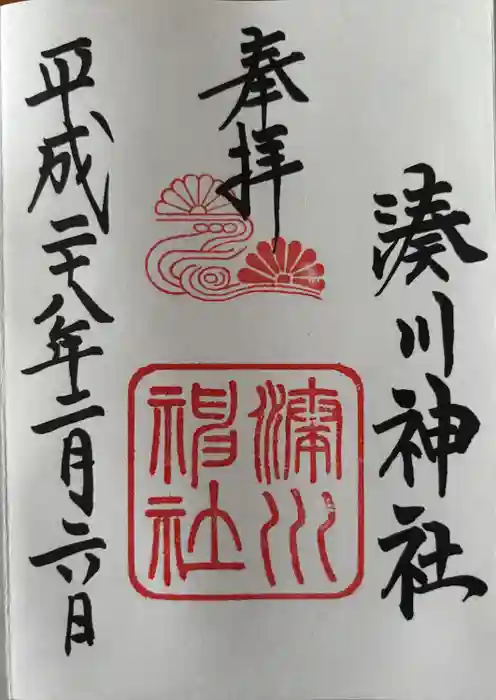 湊川神社
奉拝
湊川神社
平成二十八年二月二六日